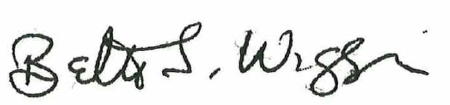 Betti L. Wiggins